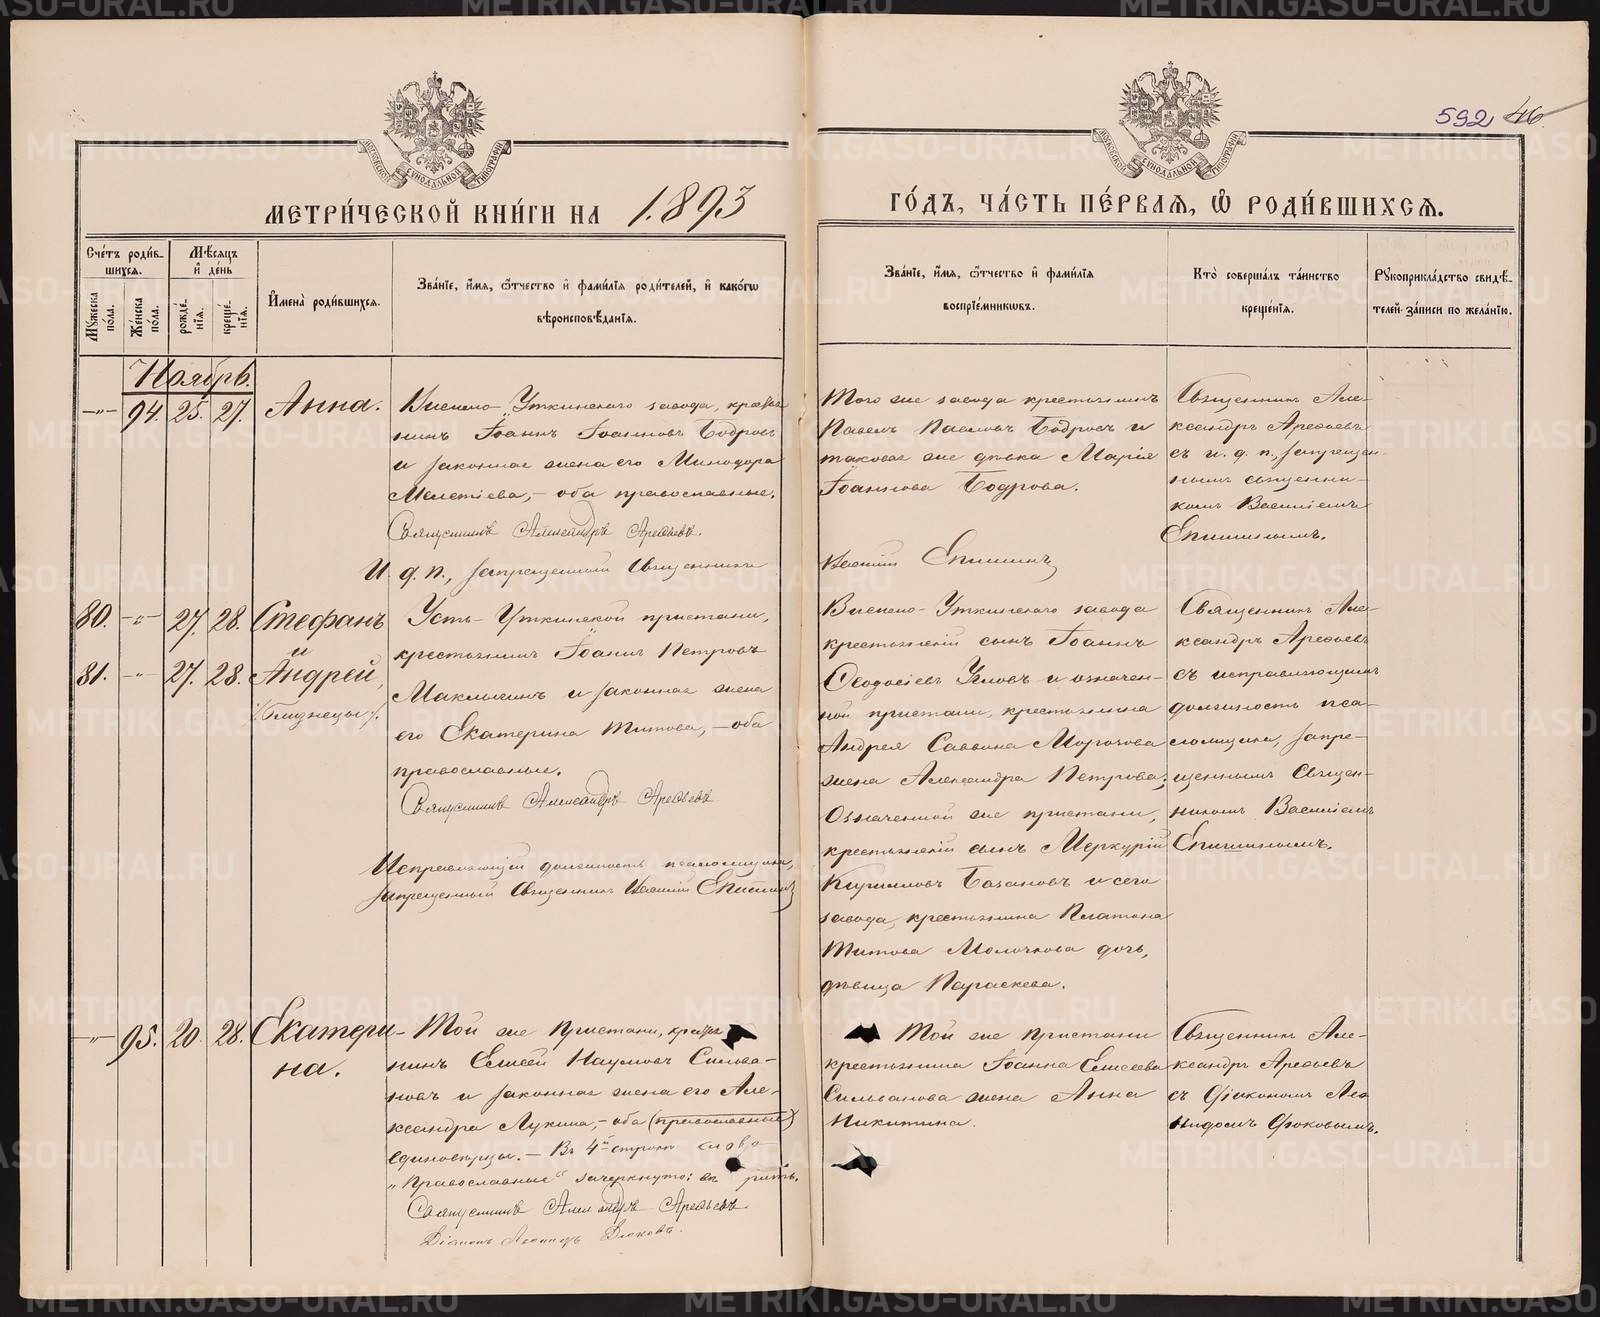 592 46
МОСКОВСКОЙ СУНОДАЛЬНОЙ ТИПОГРАФИИ
МОСКОВСКОЙ СУНОДАЛЬНОЙ ТИПОГРАФИИ
МЕТРИ́ЧЕСКОЙ КНИ́ГИ НА 1893
ГО́ДЪ, ЧА́СТЬ ПЕ́РВАЯ, Ѿ РОДИ́ВШИХСЯ.
Сче́тъ роди́вшихся.
Му́жеска по́ла.
Же́нска по́ла.
Мѣ́сяцъ и҆ де́нь
рожде́нїя.
креще́нїя.
И҆мена̀ роди́вшихся.
Зва́нїе, и҆́мя, ѻ҆́тчество и҆ фами́лїя роди́телей, и҆ како́гѡ
вѣроисповѣ́данїя.
Зва́нїе, и҆́мя, ѻ҆́тчество и҆ фами́лїя
воспрїе́мниковъ.
Кто̀ соверша́лъ та́инство
креще́нїя.
Рукоприкла́дство свидѣ́-
телей за́писи по жела́нїю.
Ноябрь.
-"- 94. 25. 27. Анна.
Висимо-Уткинскаго завода, кресть
нинъ Іоаннъ Іоанновъ Бодровъ
и законная жена его Минодора
Мелетіева, - оба православные.
Священникъ Александръ Арефьевъ.
И. д. п., запрещенный Священникъ
Того же завода крестьянинъ
Павелъ Павловъ Бодровъ и
таковая же дѣвка Марія
Іоаннова Бодрова.
Василій Епишинъ
Священникъ Але-
ксандръ Арефьевъ
съ и. д. п., запрещен-
нымъ священни-
комъ Василіемъ
Епишинымъ.
80. -"- 27. 28. Стефанъ
и
81. -"- 27. 28. Андрей,
/:близнецы:/.
Усть-Уткинской пристани,
крестьянинъ Іоаннъ Петровъ
Маклыгинъ и законная жена
его Екатерина Титова, - оба
православные.
Священникъ Александръ Арефьевъ
Исправляющій должность псаломщика,
запрещенный Священникъ Василій Епишинъ
Висимо-Уткинскаго завода
крестьянскій сынъ Іоаннъ
Ѳеодосіевъ Углов и означен-
ной пристани, крестьянина
Андрея Саввина Морочова
жена Александра Петрова;
Означенной же пристани,
крестьянскій сынъ Меркурій
Кирилловъ Базановъ и сего
завода, крестьянина Платона
Титова Молочкова дочь,
дѣвица Параскева.
Священникъ Але-
ксандръ Арефьевъ
съ исправляющимъ
должность пса-
ломщика, запре-
щеннымъ Священ-
никомъ Василіемъ
Епишинымъ.
-"- 95. 20. 28. Екатери-
на.
Той же пристани, кресть
нинъ Елисей Наумовъ Сильва-
новъ и законная жена его Але-
ксандра Лукина, - оба (православные)
единовѣрцы. - Въ 4й строкѣ слово
„Православные" зачеркнуто;
Священникъ Александръ Арефьевъ.
Діаконъ Леонидъ Дюковъ.
Той же пристани
крестьянина Іоанна Елисеева
Сильванова жена Анна
Никитина.
Священникъ Але-
ксандръ Арефьевъ
съ Діакономъ Лео
нидомъ Дюковымъ.
METRIKI.GASO-URAL.RU